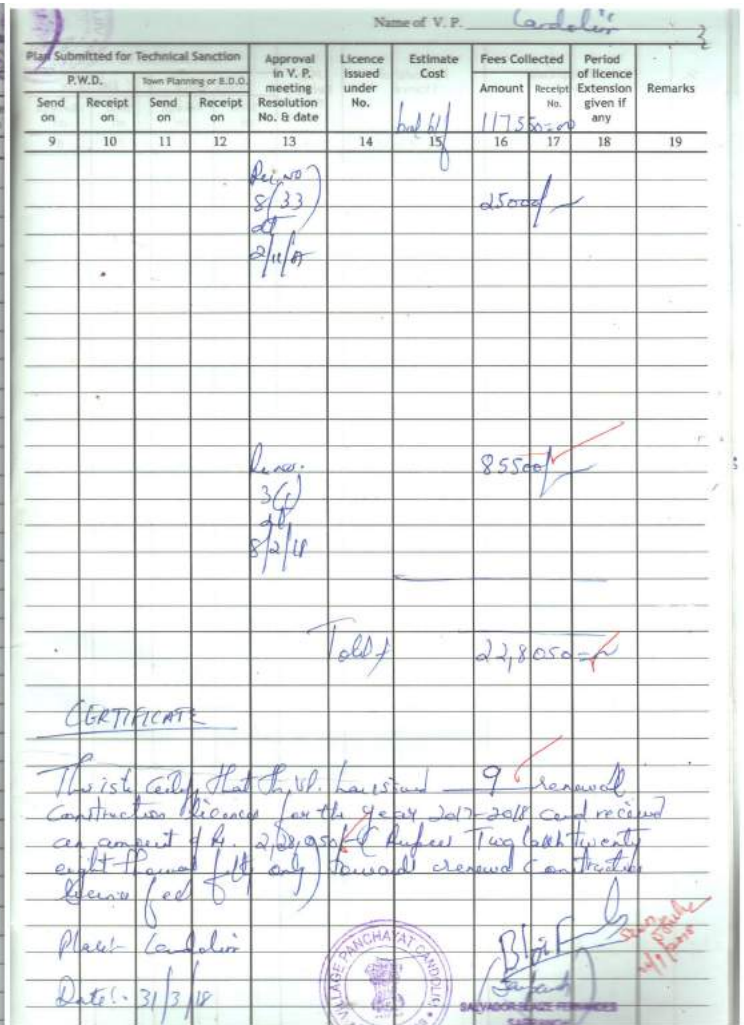 Name of V. P. Candolim
Plan Submitted for Technical Sanction
Approval in V. P. meeting Resolution No. & date
Licence issued under No.
Estimate Cost
Fees Collected
Period of licence Extension given if any
Remarks
P.W.D.
Town Planning or B.D.O.
Amount
Receipt No.
Send on
Receipt on
Send on
Receipt on
bal b/f
117550=00
9 10 11 12 13 14 15 16 17 18 19
8/33
25000/-
dt
2/11/17
85500/-
dt
8/2/18
Total
22,8050=00
CERTIFICATE
This is to certify that the V.P. has issued 9 renewal
Construction licence for the year 2017-2018 and received
an amount of Rs. 2,28,050/- (Rupees Two lakh twenty
eight thousand fifty only) towards renewal Construction
licence fee
Place:- Candolim
Date:- 31/3/18
VILLAGE PANCHAYAT CANDOLIM
Sarpanch
SALVADOR BLAIZE FERNANDES
SARPANCH